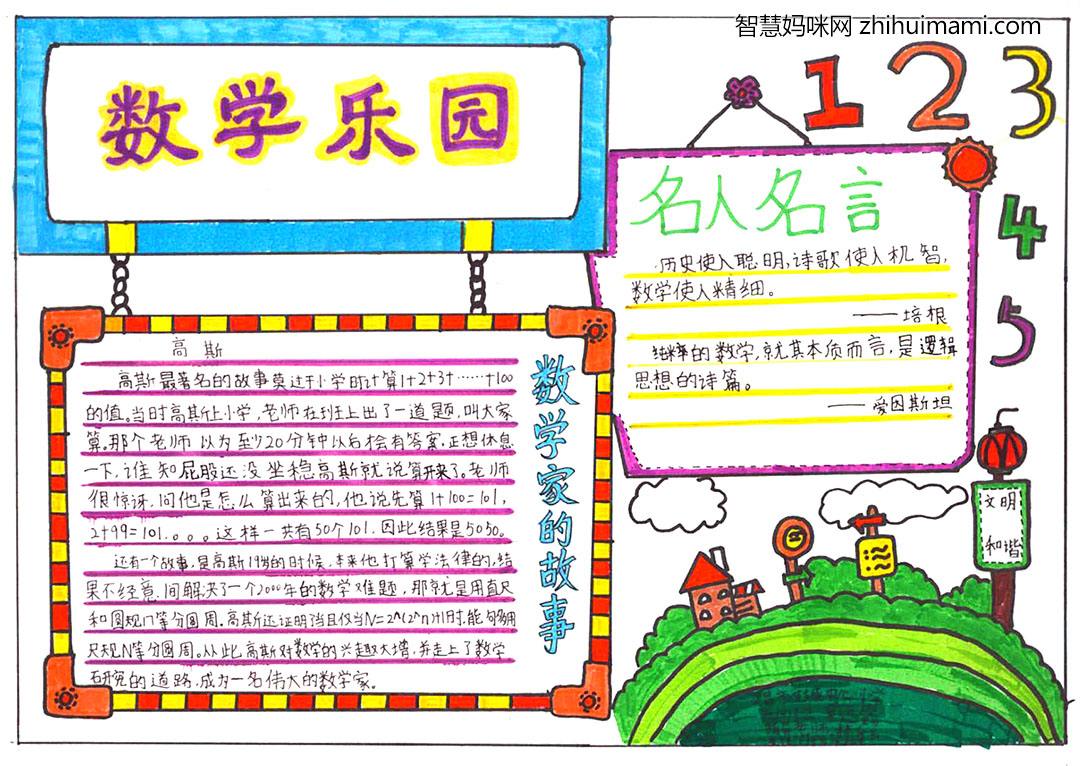 智慧妈咪网 zhihuimami.com
数学乐园
1 2 3
4
5
名人名言
历史使人聪明,诗歌使人机智,
数学使人精细。
——培根
纯粹的数学,就其本质而言,是逻辑
思想的诗篇。
——爱因斯坦
高斯
高斯最著名的故事莫过于小学时计算1+2+3+……+100
的值。当时高斯上小学,老师在班上出了一道题,叫大家
算。那个老师以为至少20分钟以后才会有答案,正想休息
一下,谁知屁股还没坐稳高斯就说算出来了。老师
很惊讶,问他是怎么算出来的,他说先算1+100=101,
2+99=101.。。。这样一共有50个101.因此结果是5050。
还有一个故事,是高斯19岁的时候,本来他打算学法律的,结
果不经意间解决了一个2000年的数学难题,那就是用直尺
和圆规17等分圆周。高斯还证明当且仅当N=2^(2^n)+1时,能够用
尺规N等分圆周。从此,高斯对数学的兴趣大增,并走上了数学
研究的道路,成为一名伟大的数学家。
数学家的故事
文明
和谐